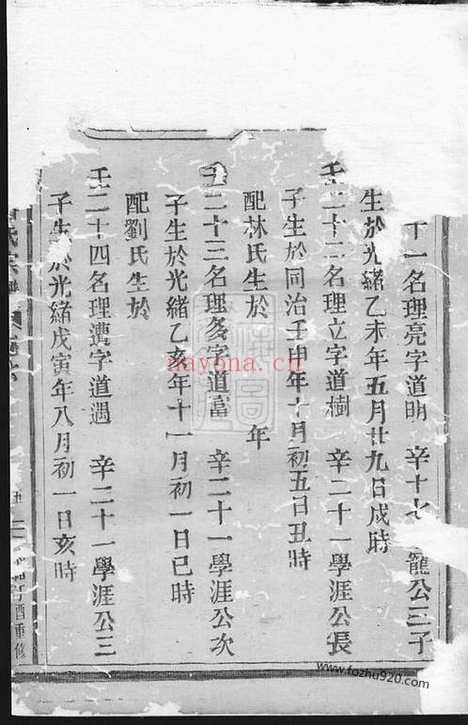 十一名理亮字道明 辛十七 寵公三子
生於光緒乙未年五月廿九日戍時
壬二十二名理立字道樹 辛二十一學涯公長
子生於同治壬申年十月初五日丑時
配林氏生於 年
二十三名理多字道富 辛二十一學涯公次
子生於光緒乙亥年十一月初一日巳時
配劉氏生於
壬二十四名理遭字道遇 辛二十一學涯公三
子生於光緒戊寅年八月初一日亥時
酉重修
nayona.cn
www.fozhu920.com